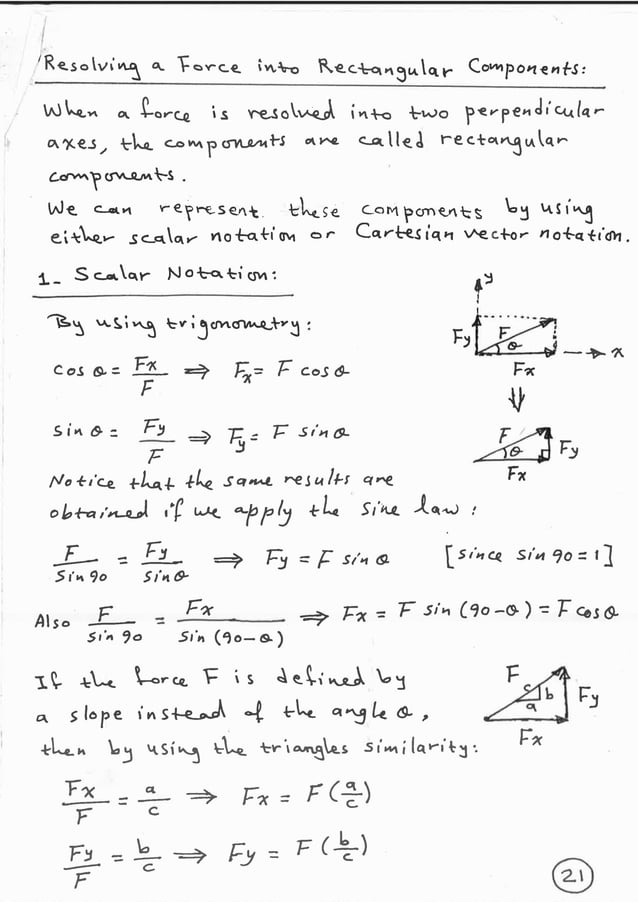 Resolving a Force into Rectangular Components:
When a force is resolved into two perpendicular
axes, the components are called rectangular
components.
We can represent these components by using
either scalar notation or Cartesian vector notation.
1- Scalar Notation:
By using trigonometry:
cos θ = Fx/F ⇒ Fx = F cos θ
sin θ = Fy/F ⇒ Fy = F sin θ
y
Fy F θ
x
Fx
⇓
F θ Fy
Fx
Notice that the same results are
obtained if we apply the sine law:
F/sin 90 = Fy/sin θ ⇒ Fy = F sin θ [since sin 90 = 1]
Also F/sin 90 = Fx/sin (90-θ) ⇒ Fx = F sin (90-θ) = F cos θ
If the force F is defined by
a slope instead of the angle θ,
then by using the triangles similarity:
F c b a Fy
Fx
Fx/F = a/c ⇒ Fx = F (a/c)
Fy/F = b/c ⇒ Fy = F (b/c)
21